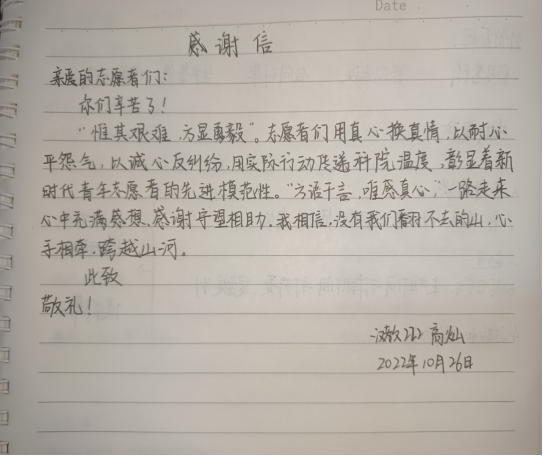 Date
感谢信
亲爱的志愿者们：
你们辛苦了！
“惟其艰难，方显勇毅”。志愿者们用真心换真情，以耐心
平怨气，以诚心反纠纷，用实际行动传递科院温度，彰显着新
时代青年志愿者的先进模范性。“万语千言，唯感真心”一路走来
心中充满感想，感谢守望相助，我相信，没有我们翻不去的山，心
手相牵，跨越山河。
此致
敬礼！
汉教212 高灿
2022年10月26日